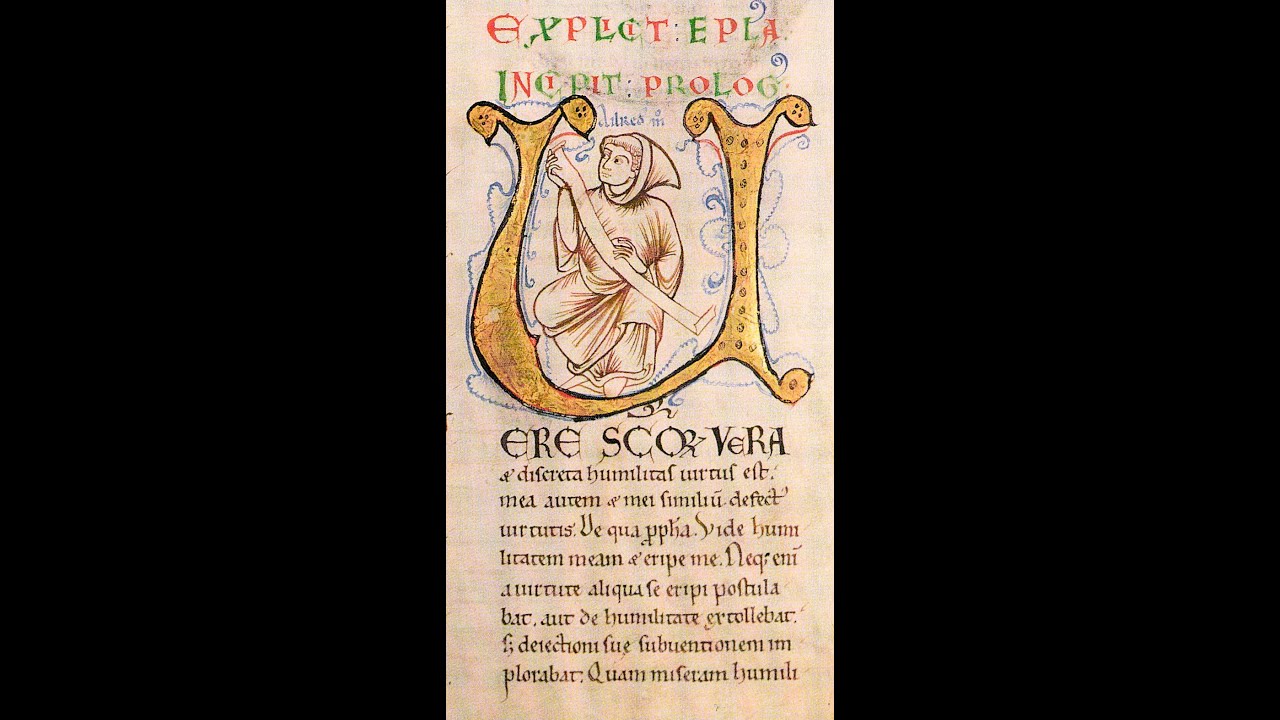 EXPLICIT : EPLA
INCIPIT : PROLOG
Ailred m
U
ERE SCOR VERA
& discreta humilitas uirtus est.
mea autem & mei similiū defect'
uirtutis. De qua ꝓpha. Vide humi
litatem meam & eripe me. Neq; eni
a uirtute aliqua se eripi postula
bat. aut de humilitate extollebat.
s; deiectioni suę subuentionem im
plorabat. Quam miseram humili